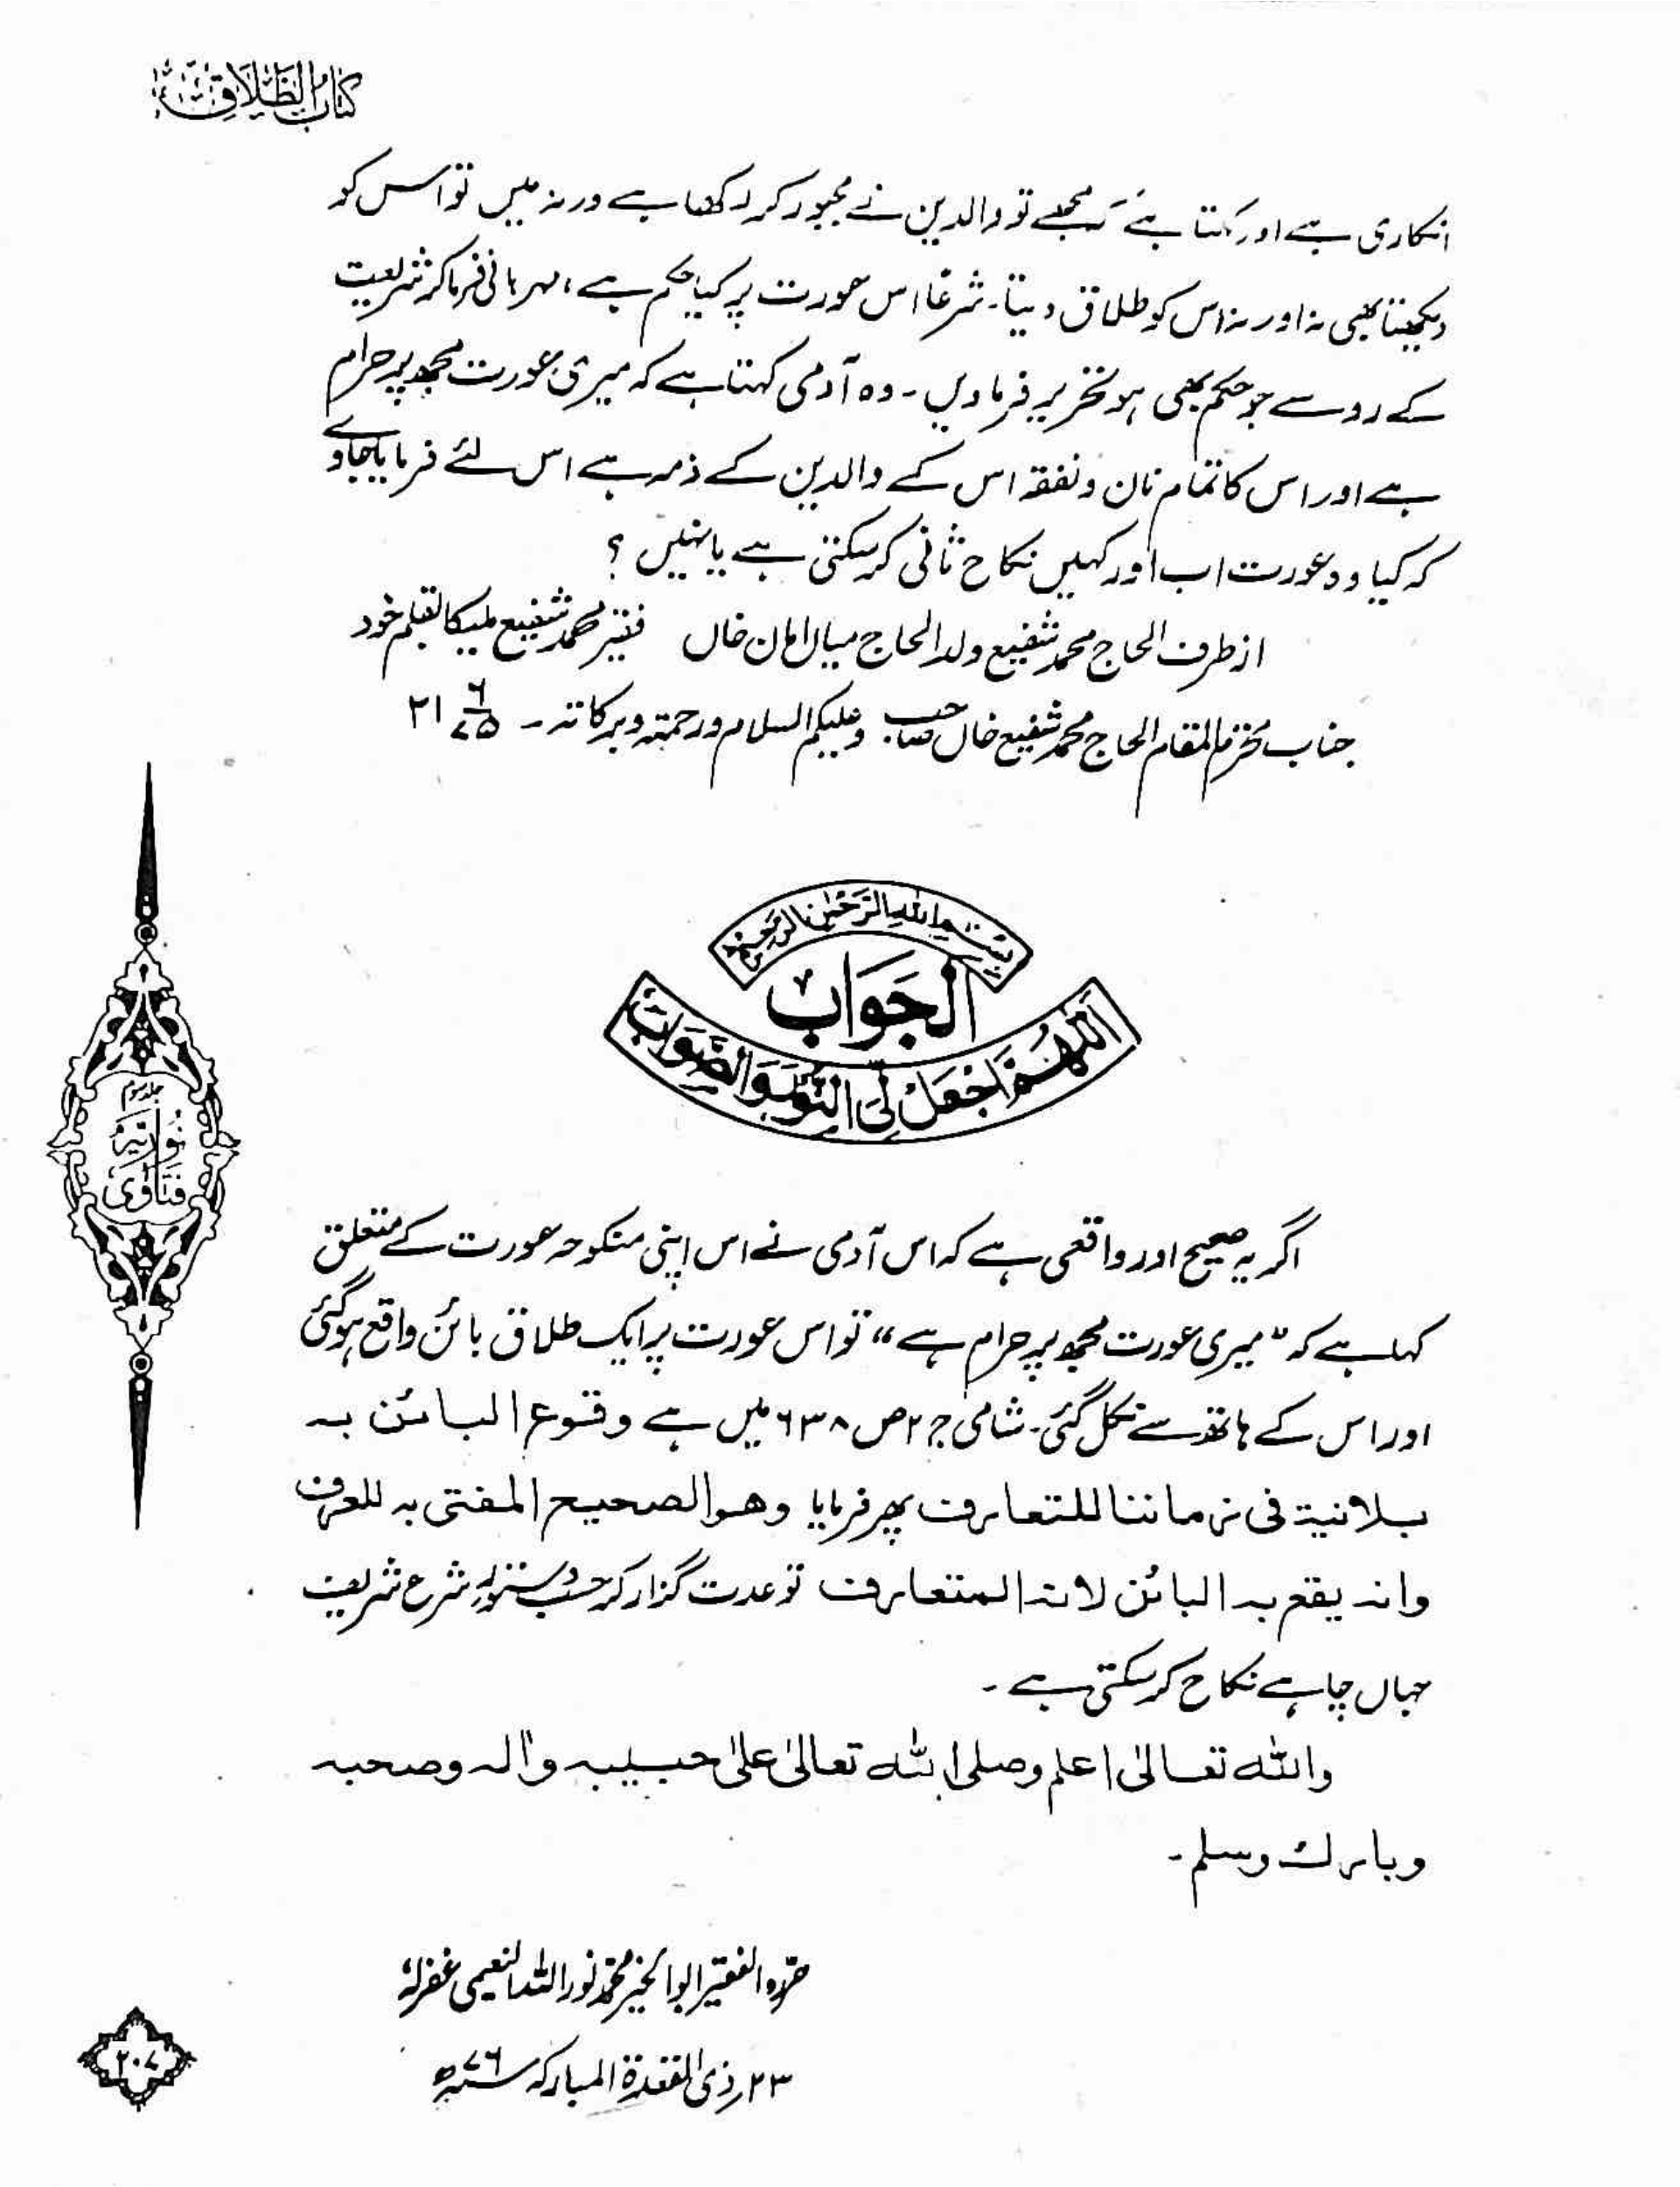 کتاب الطلاق
انکاری ہے اور کہتا ہے کہ مجھے تو والدین نے مجبور کر رکھا ہے ورنہ میں تو اس کو
دیکھتا بھی نہ اور نہ اس کو طلاق دیتا۔ شرعًا اس عورت پر کیا حکم ہے، مہربانی فرما کر شریعت
کے رو سے جو حکم بھی ہو تحریر فرما دیں۔ وہ آدمی کہتا ہے کہ میری عورت مجھ پر حرام
ہے اور اس کا تمام نان و نفقہ اس کے والدین کے ذمہ ہے اس لئے فرمایا جاوے
کہ کیا وہ عورت اب اور کہیں نکاح ثانی کر سکتی ہے یا نہیں ؟
از طرف الحاج محمد شفیع ولد الحاج میاں امان خاں فقیر محمد شفیع بقلم خود
جناب محترم المقام الحاج محمد شفیع خاں صاحب وعلیکم السلام ورحمتہ وبرکاتہ۔ ۲۱
بسم اللہ الرحمٰن الرحیم
الجَوَابُ
اَللّٰهُمَّ اجْعَلْ لِّیَ النُّوْرَ وَالصَّوَابَ
اگر یہ صحیح اور واقعی ہے کہ اس آدمی نے اس اپنی منکوحہ عورت کے متعلق
کہا ہے کہ “میری عورت مجھ پر حرام ہے” تو اس عورت پر ایک طلاق بائن واقع ہو گئی
اور اس کے ہاتھ سے نکل گئی۔ شامی ج ۲ ص ۶۳۸ میں ہے وقوع البائن بہ
بلا نیۃ فی زماننا للتعارف پھر فرمایا وھو الصحیح المفتی بہ للعرف
وانہ یقع بہ البائن لانہ المتعارف تو عدت گزار کر حسب دستور شرع شریف
جہاں چاہے نکاح کر سکتی ہے۔
واللہ تعالیٰ اعلم وصلی اللہ تعالیٰ علیٰ حبیبہ واٰلہ وصحبہ
وبارک وسلم۔
حررہ الفقیر ابوالخیر محمد نور اللہ النعیمی غفرلہ
۲۳ ذی القعدۃ المبارکہ ۷۶ھ
جلد سوم
فتاوی نوریہ
۲۰۷